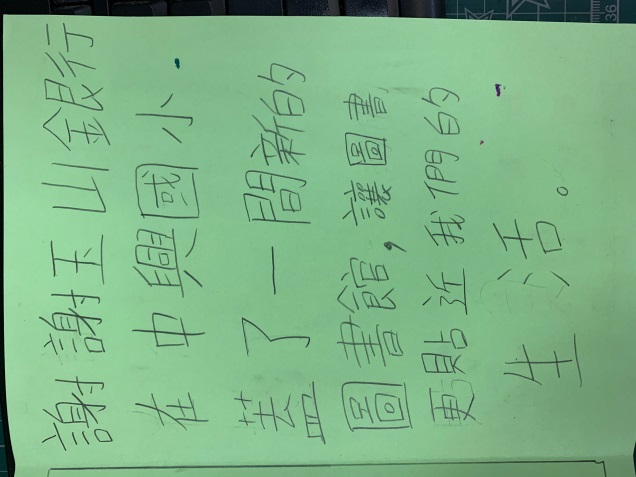 謝謝玉山銀行
在中興國小
蓋了一間新的
圖書館，讓圖書
更貼近我們的
生活。